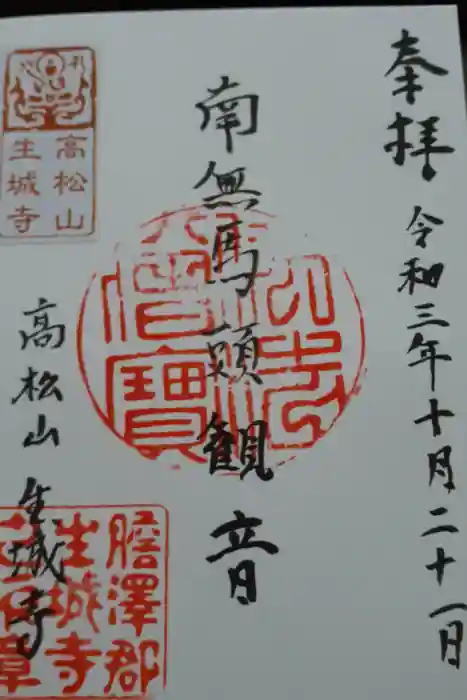 奉拝 令和三年十月二十一日
南無馬頭観音
佛法
僧寶
高松山
生城寺
高松山 生城寺
膽澤郡
生城寺